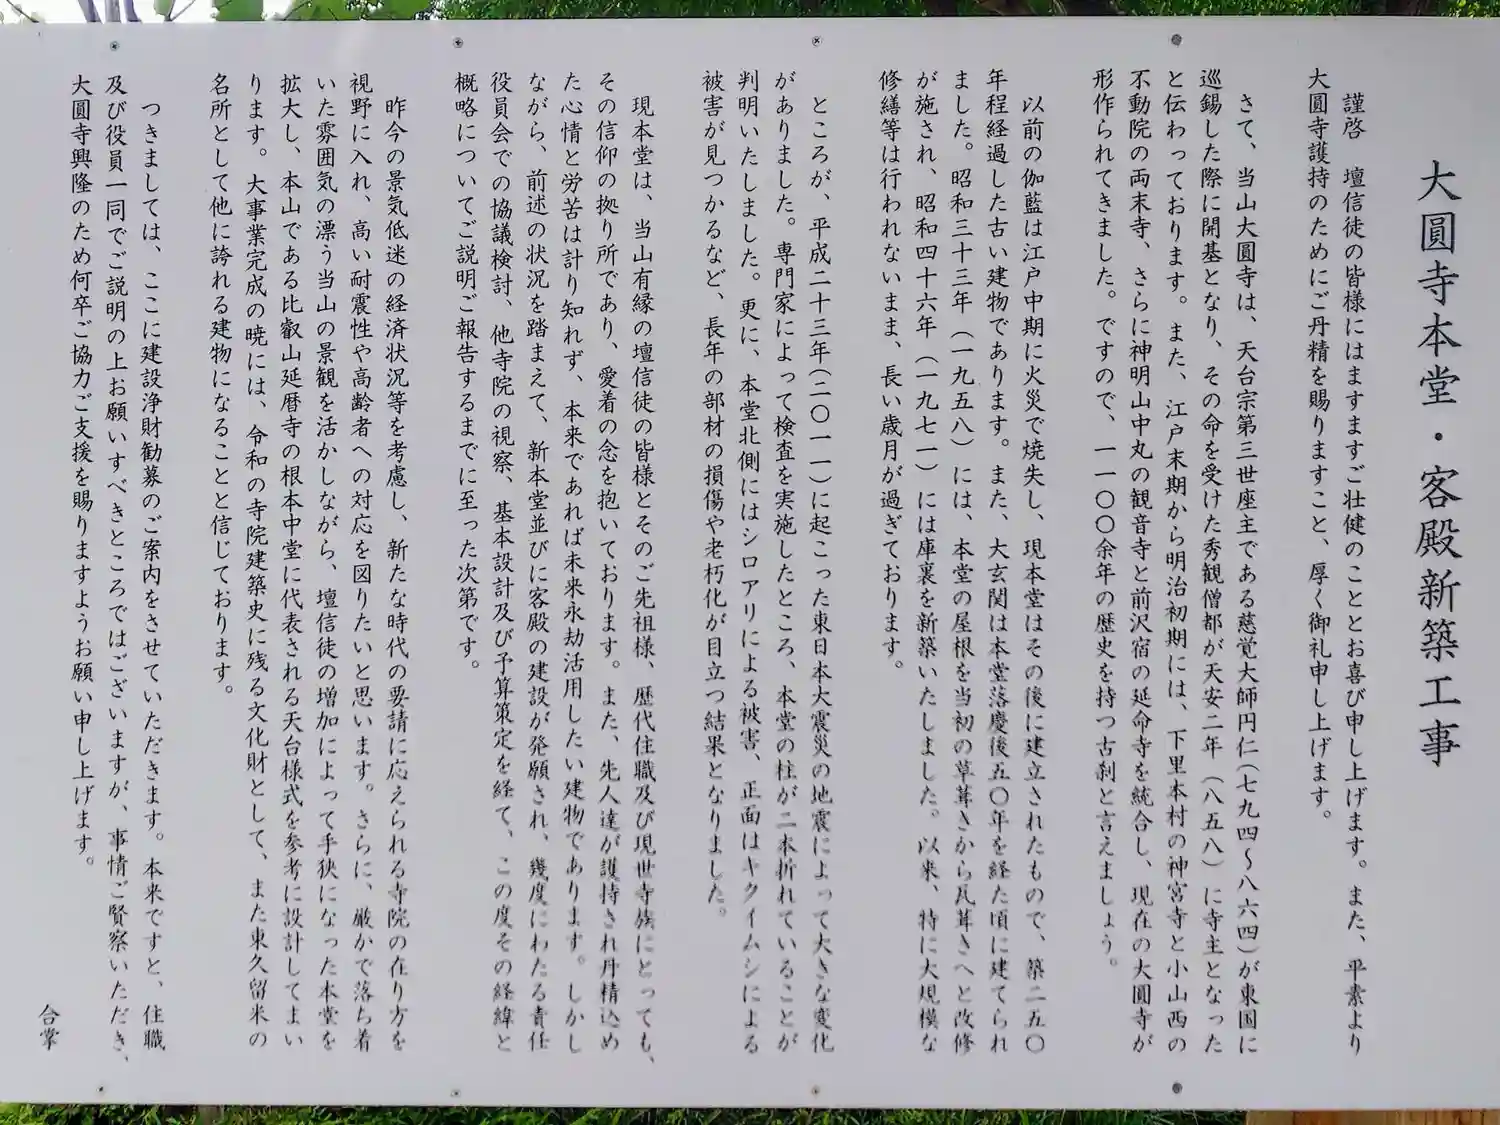 大圓寺本堂・客殿新築工事
謹啓　壇信徒の皆様にはますますご壮健のこととお喜び申し上げます。また、平素より
大圓寺護持のためにご丹精を賜りますこと、厚く御礼申し上げます。
さて、当山大圓寺は、天台宗第三世座主である慈覚大師円仁(七九四〜八六四)が東国に
巡錫した際に開基となり、その命を受けた秀観僧都が天安二年（八五八）に寺主となった
と伝わっております。また、江戸末期から明治初期には、下里本村の神宮寺と小山西の
不動院の両末寺、さらに神明山中丸の観音寺と前沢宿の延命寺を統合し、現在の大圓寺が
形作られてきました。ですので、一一〇〇余年の歴史を持つ古刹と言えましょう。
以前の伽藍は江戸中期に火災で焼失し、現本堂はその後に建立されたもので、築二五〇
年程経過した古い建物であります。また、大玄関は本堂落慶後五〇年を経た頃に建てられ
ました。昭和三十三年（一九五八）には、本堂の屋根を当初の草葺きから瓦葺きへと改修
が施され、昭和四十六年（一九七一）には庫裏を新築いたしました。以来、特に大規模な
修繕等は行われないまま、長い歳月が過ぎております。
ところが、平成二十三年(二〇一一)に起こった東日本大震災の地震によって大きな変化
がありました。専門家によって検査を実施したところ、本堂の柱が二本折れていることが
判明いたしました。更に、本堂北側にはシロアリによる被害、正面はキクイムシによる
被害が見つかるなど、長年の部材の損傷や老朽化が目立つ結果となりました。
現本堂は、当山有縁の壇信徒の皆様とそのご先祖様、歴代住職及び現世寺族にとっても、
その信仰の拠り所であり、愛着の念を抱いております。また、先人達が護持され丹精込め
た心情と労苦は計り知れず、本来であれば未来永劫活用したい建物であります。しかし
ながら、前述の状況を踏まえて、新本堂並びに客殿の建設が発願され、幾度にわたる責任
役員会での協議検討、他寺院の視察、基本設計及び予算策定を経て、この度その経緯と
概略についてご説明ご報告するまでに至った次第です。
昨今の景気低迷の経済状況等を考慮し、新たな時代の要請に応えられる寺院の在り方を
視野に入れ、高い耐震性や高齢者への対応を図りたいと思います。さらに、厳かで落ち着
いた雰囲気の漂う当山の景観を活かしながら、壇信徒の増加によって手狭になった本堂を
拡大し、本山である比叡山延暦寺の根本中堂に代表される天台様式を参考に設計してまい
ります。大事業完成の暁には、令和の寺院建築史に残る文化財として、また東久留米の
名所として他に誇れる建物になることと信じております。
つきましては、ここに建設浄財勧募のご案内をさせていただきます。本来ですと、住職
及び役員一同でご説明の上お願いすべきところではございますが、事情ご賢察いただき、
大圓寺興隆のため何卒ご協力ご支援を賜りますようお願い申し上げます。
合掌